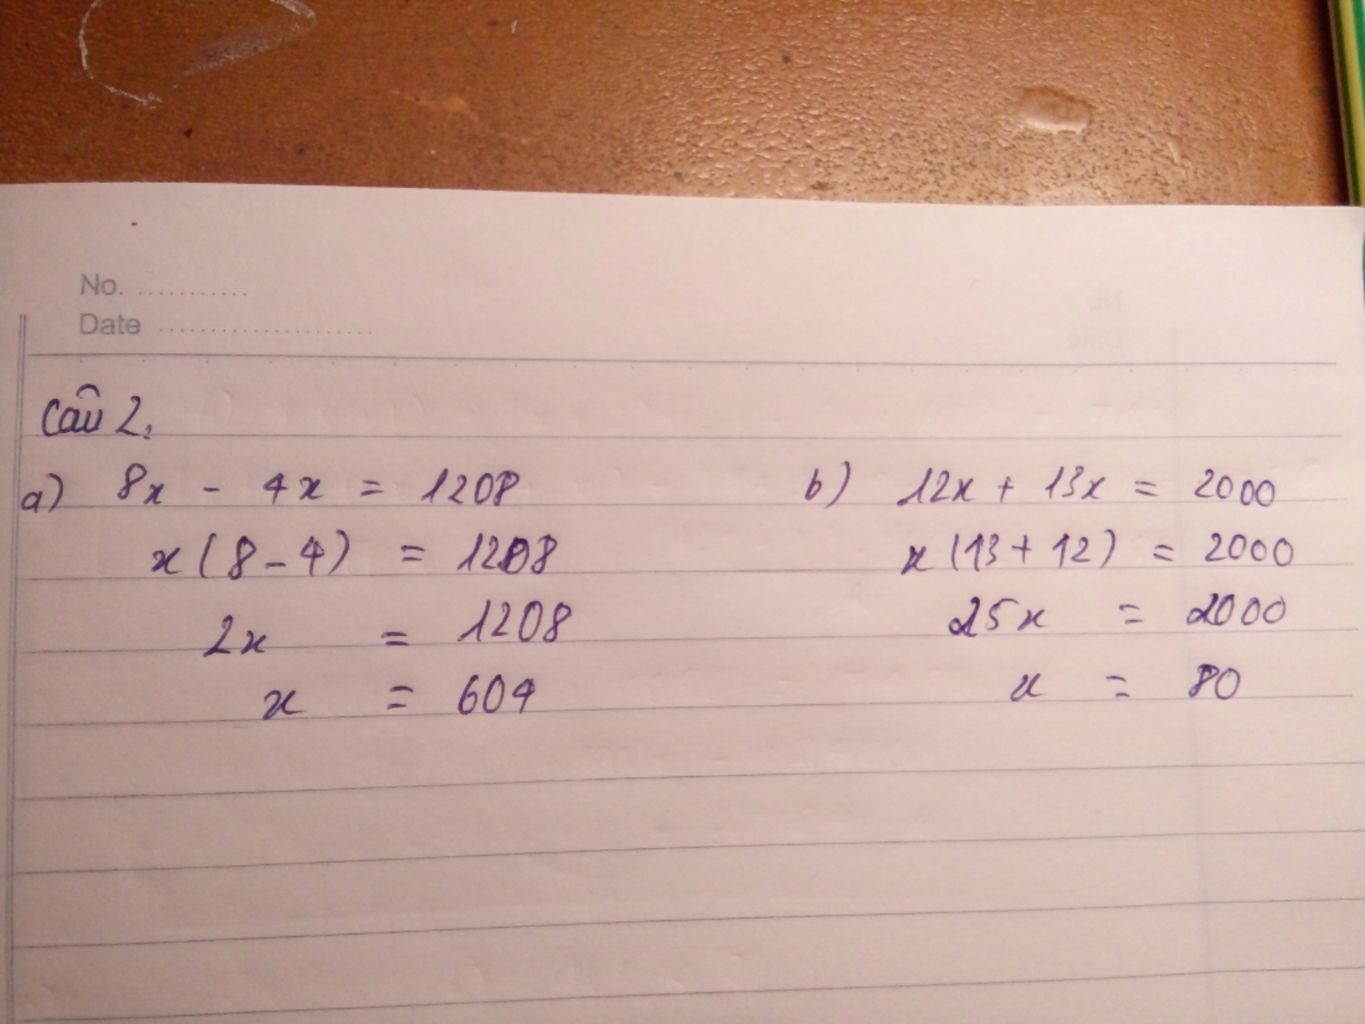 No. ...........
Date ....................
Câu 2.
a) 8x - 4x = 1208
x(8-4) = 1208
2x = 1208
x = 604
b) 12x + 13x = 2000
x(13+12) = 2000
25x = 2000
x = 80